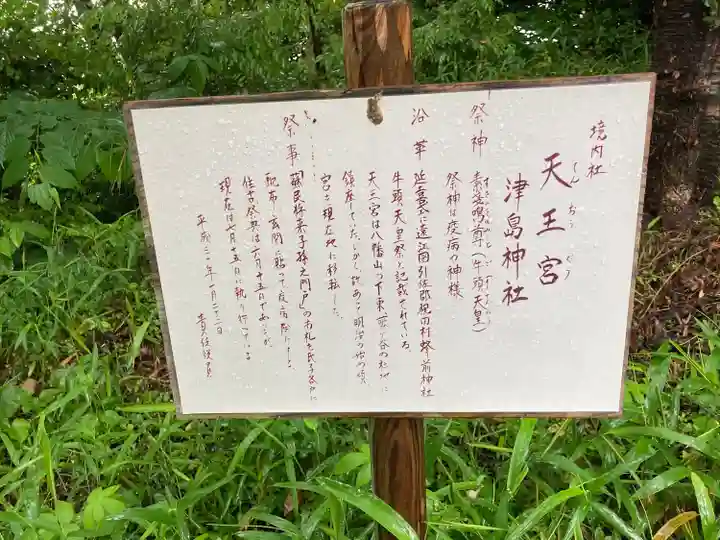 境内社
天王宮
てん おう ぐう
津島神社
祭神 素盞鳴尊(牛頭天皇)
祭神は疫病の神様
沿革 延喜式に遠江国引佐郡祝田村蜂前神社
牛頭天皇祭の記載されている。
天王宮は八幡山の下東の谷の社地に
鎮座していた。しかし訳あって明治の始め頃
宮を現在地に移転した。
祭事 蘇民将来子孫之門戸のお札を氏子各戸に
配布し玄関に貼って疫病除けとする。
往古祭典は六月十五日であったが
現在は七月十五日に執り行っている
平成二一年一月二三日